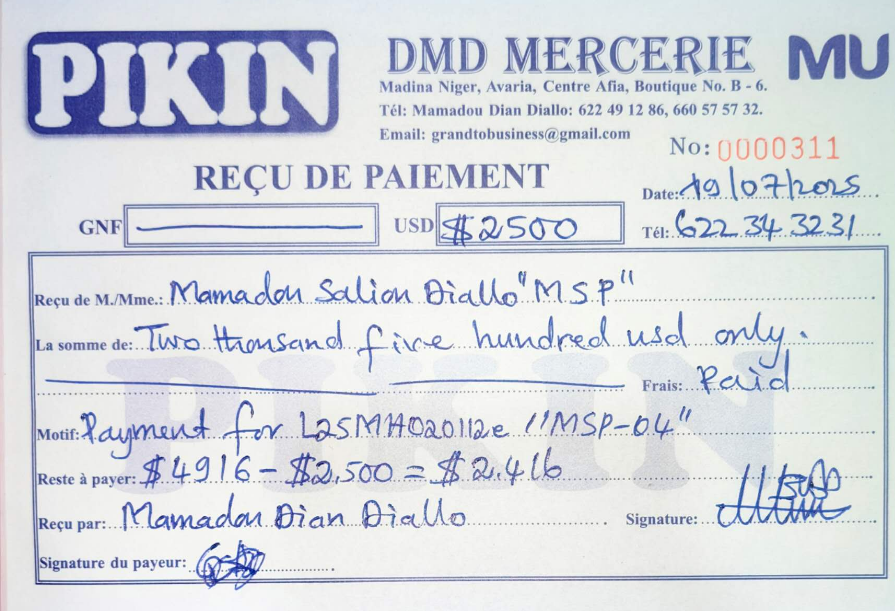 PIKIN
DMD MERCERIE
MU
Madina Niger, Avaria, Centre Afia, Boutique No. B - 6.
Tél: Mamadou Dian Diallo: 622 49 12 86, 660 57 57 32.
Email: grandtobusiness@gmail.com
No: 0000311
REÇU DE PAIEMENT
Date: 19/07/2025
GNF
USD $2500
Tél: 622 34 32 31
Reçu de M./Mme.: Mamadou Saliou Diallo "MSP"
La somme de: Two thousand five hundred usd only.
Frais: Paid
Motif: Payment for L25MH020112e "MSP-04"
Reste à payer: $4916 - $2.500 = $2.416
Reçu par: Mamadou Dian Diallo
Signature:
Signature du payeur:
PIKIN